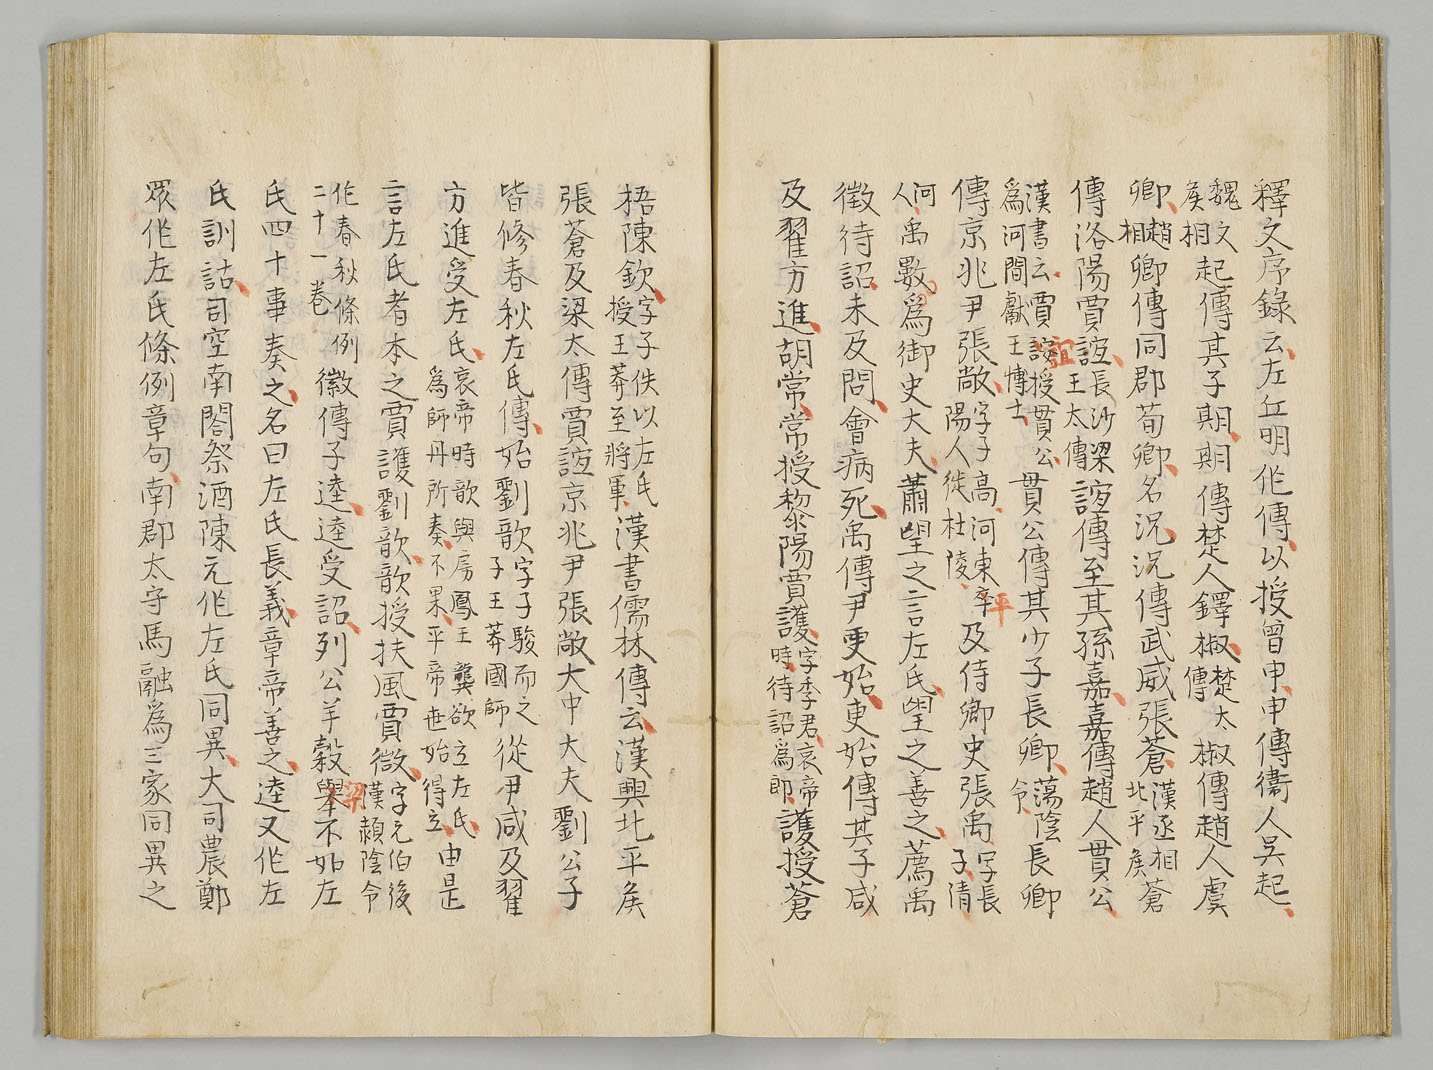 釋文序錄云左丘明作傳以授曾申申傳衞人吳起
魏文侯相起傳其子期期傳楚人鐸椒楚太傅椒傳趙人虞
卿趙相卿傳同郡荀卿名況況傳武威張蒼漢丞相北平侯蒼
傳洛陽賈誼長沙梁王太傅誼傳至其孫嘉嘉傳趙人貫公
漢書云賈誼誼授貫公爲河間獻王博士貫公傳其少子長卿蕩陰令長卿
傳京兆尹張敞字子高河東平陽人徙杜陵及侍御史張禹字長子清
河人禹數爲御史大夫蕭望之言左氏望之善之薦禹
徵待詔未及問會病死禹傳尹更始更始傳其子咸
及翟方進胡常常授黎陽賈護字季君哀帝時待詔爲郎護授蒼
梧陳欽字子佚以左氏授王莽至將軍漢書儒林傳云漢興北平侯
張蒼及梁太傅賈誼京兆尹張敞大中大夫劉公子
皆修春秋左氏傳始劉歆字子駿王莽國師而之子從尹咸及翟
方進受左氏哀帝時歆與房鳳王龔欲立左氏爲師丹所奏不果平帝世始得立由是
言左氏者本之賈護劉歆歆授扶風賈徽字元伯後漢潁陰令
作春秋條例二十一卷徽傳子逵逵受詔列公羊穀梁不如左
氏四十事奏之名曰左氏長義章帝善之逵又作左
氏訓詁司空南閤祭酒陳元作左氏同異大司農鄭
眾作左氏條例章句南郡太守馬融爲三家同異之